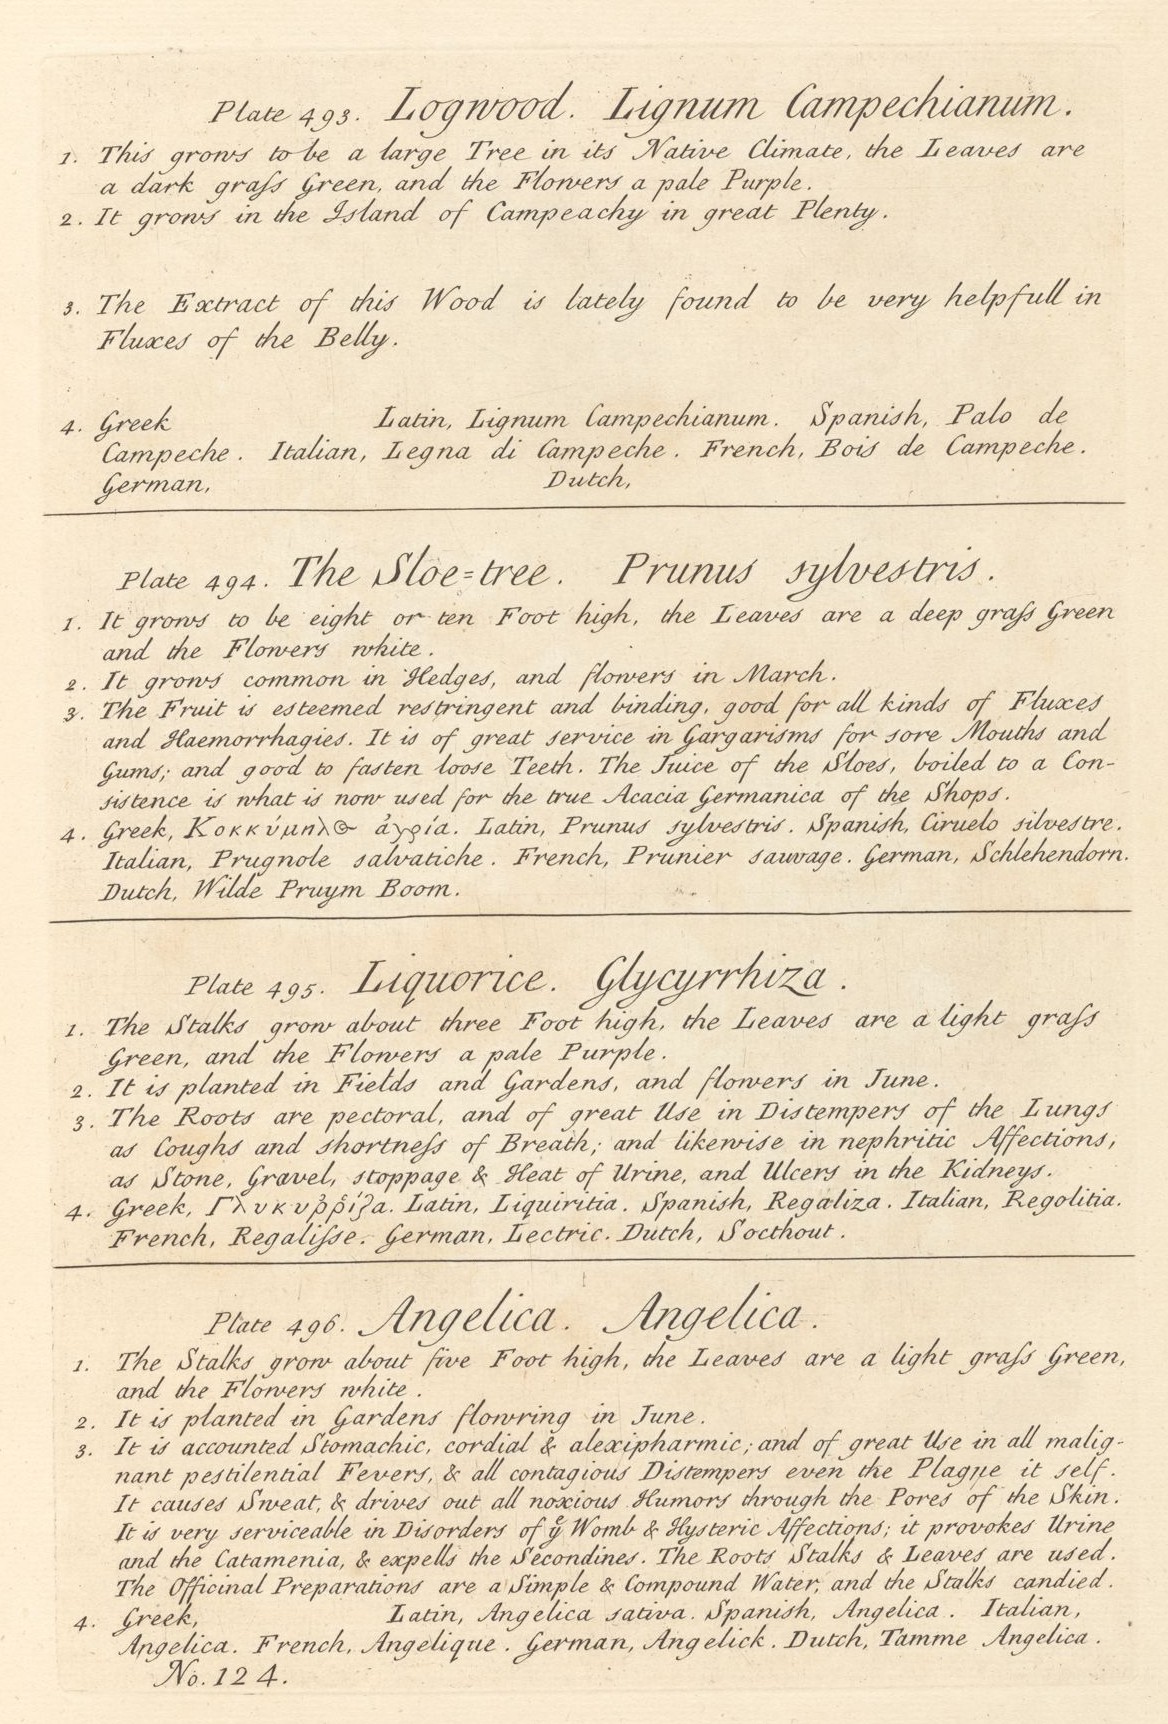 Plate 493. Logwood. Lignum Campechianum.
1. This grows to be a large Tree in its Native Climate, the Leaves are
a dark graſs Green, and the Flowers a pale Purple.
2. It grows in the Island of Campeachy in great Plenty.
3. The Extract of this Wood is lately found to be very helpfull in
Fluxes of the Belly.
4. Greek Latin, Lignum Campechianum. Spanish, Palo de
Campeche. Italian, Legna di Campeche. French, Bois de Campeche.
German, Dutch,
Plate 494. The Sloe=tree. Prunus sylvestris.
1. It grows to be eight or ten Foot high, the Leaves are a deep graſs Green
and the Flowers white.
2. It grows common in Hedges, and flowers in March.
3. The Fruit is esteemed restringent and binding, good for all kinds of Fluxes
and Haemorrhagies. It is of great service in Gargarisms for sore Mouths and
Gums; and good to fasten loose Teeth. The Juice of the Sloes, boiled to a Con-
sistence is what is now used for the true Acacia Germanica of the Shops.
4. Greek, Κοκκύμηλος ἀγρία. Latin, Prunus sylvestris. Spanish, Ciruelo silvestre.
Italian, Prugnole salvatiche. French, Prunier sauvage. German, Schlehendorn.
Dutch, Wilde Pruym Boom.
Plate 495. Liquorice. Glycyrrhiza.
1. The Stalks grow about three Foot high, the Leaves are a light graſs
Green, and the Flowers a pale Purple.
2. It is planted in Fields and Gardens, and flowers in June.
3. The Roots are pectoral, and of great Use in Distempers of the Lungs
as Coughs and shortneſs of Breath; and likewise in nephritic Affections,
as Stone, Gravel, stoppage & Heat of Urine, and Ulcers in the Kidneys.
4. Greek, Γλυκυῤῥίζα. Latin, Liquiritia. Spanish, Regaliza. Italian, Regolitia.
French, Regaliſse. German, Lectric. Dutch, Socthout.
Plate 496. Angelica. Angelica.
1. The Stalks grow about five Foot high, the Leaves are a light graſs Green,
and the Flowers white.
2. It is planted in Gardens flowring in June.
3. It is accounted Stomachic, cordial & alexipharmic; and of great Use in all malig-
nant pestilential Fevers, & all contagious Distempers even the Plague it self.
It causes Sweat, & drives out all noxious Humors through the Pores of the Skin.
It is very serviceable in Disorders of yͤ Womb & Hysteric Affections; it provokes Urine
and the Catamenia, & expells the Secondines. The Roots Stalks & Leaves are used.
The Officinal Preparations are a Simple & Compound Water, and the Stalks candied.
4. Greek, Latin, Angelica sativa. Spanish, Angelica. Italian,
Angelica. French, Angelique. German, Angelick. Dutch, Tamme Angelica.
No. 124.